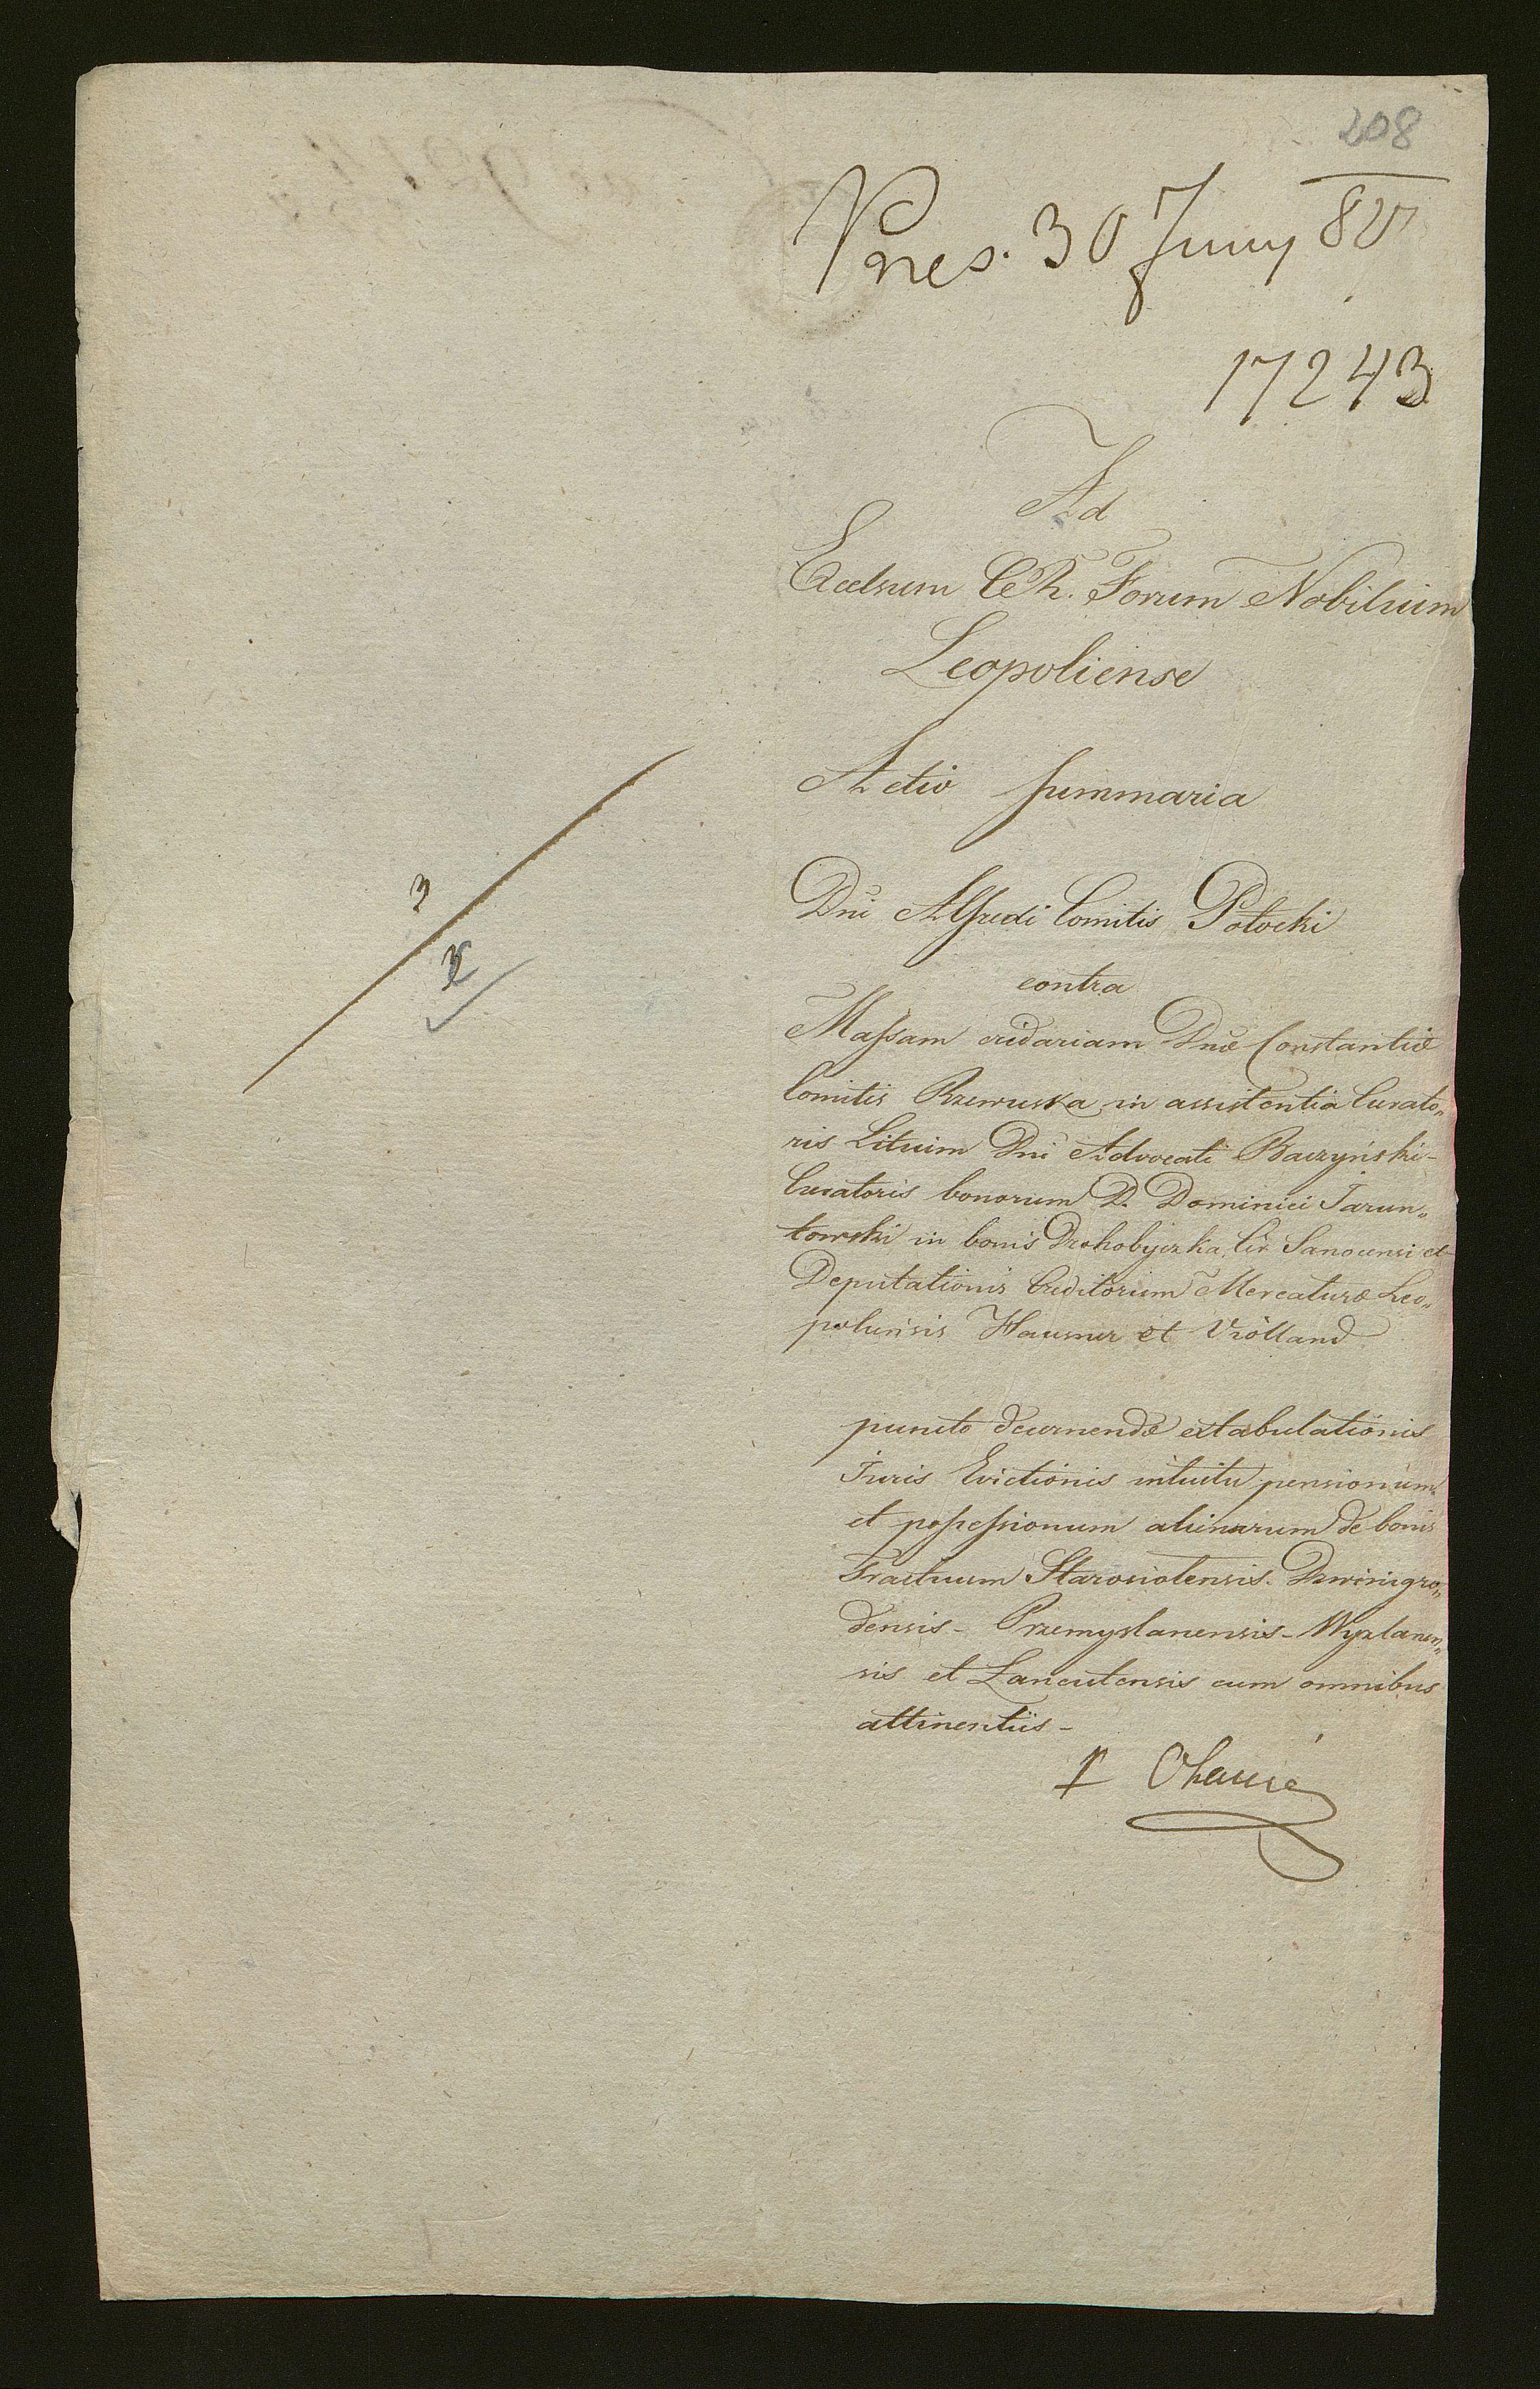 208
Pres. 30 Juny 827
17243
Ad
Excelsum C.R. Forum Nobilium
Leopoliense
Actio summaria
Dni Alfredi Comitis Potocki
contra
Massam cridariam Dnæ Constantiæ
Comitis Rzewuska in assistentia Curato„
ris Litium Dni Advocati Baczyński-
Curatoris bonorum D. Dominici Jarun„
towski in bonis Drohobyczka Cir Sanocensi et
Deputationis Creditorum Mercaturæ Leo„
poliensis Hausner et Violland
puncto decernendæ extabulationis
Juris Evictionis intuitu pensionum
et possessionum alienarum de bonis
Tractuum Starosiolensis. Dzwinigro„
densis - Przemyslanensis - Wyzlanen„
sis et Lancutensis cum omnibus
attinentiis -
3